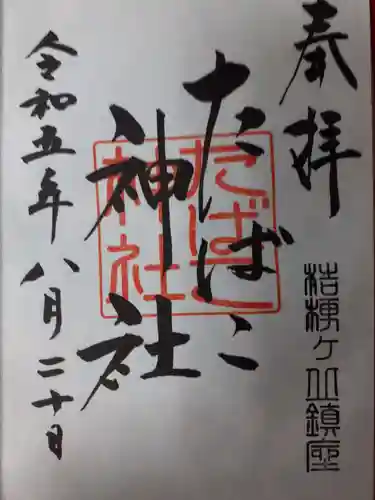 奉拝
桔梗ヶ山鎮座
たばこ
神社
たばこ
神社
令和五年八月二十日